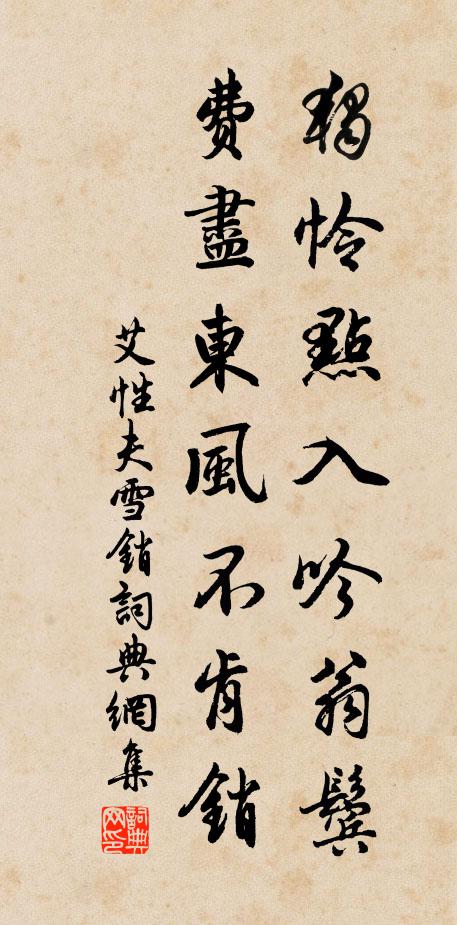 獨憐點入吟翁鬢
費盡東風不肯銷
艾性夫雪銷詞典網集
詞典网印